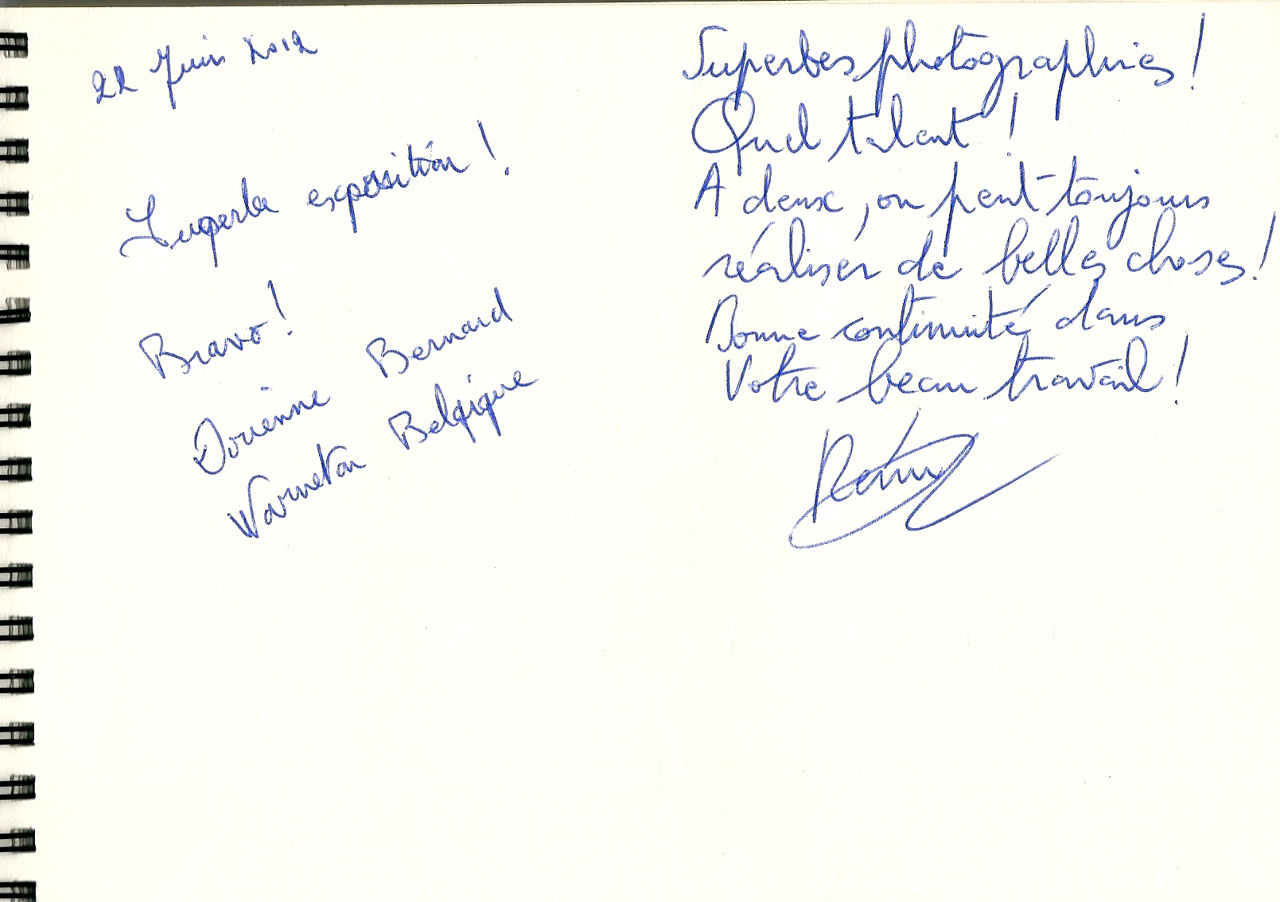 22 Juin 2012
Superbe exposition !
Bravo !
Douenne Bernard
Warneton Belgique
Superbes photographies !
Quel talent !
A deux, on peut toujours
réaliser de belles choses !
Bonne continuité dans
Votre beau travail !
Rémy